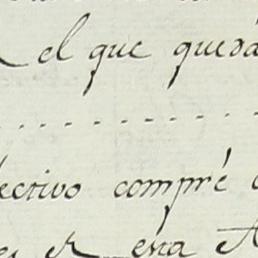 el que queda
. . . . . . . . .
ectivo compré
esta A